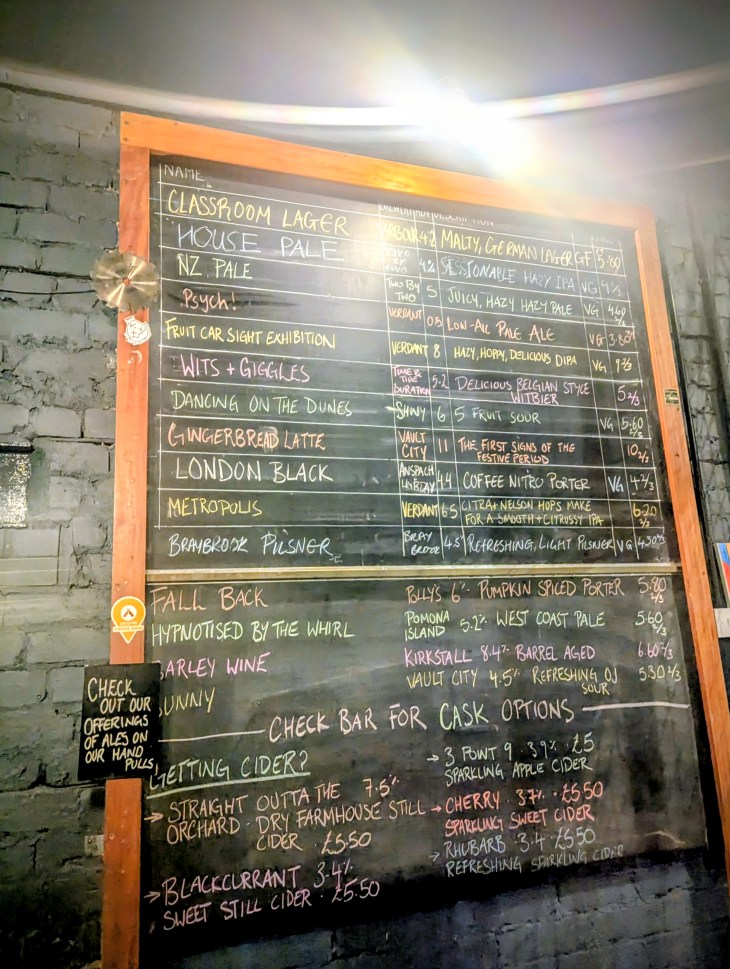 NAME DESCRIPTION
CLASSROOM LAGER ARBOUR 4.2 MALTY, GERMAN LAGER GF 5.80
HOUSE PALE TWO BY TWO 4% SESSIONABLE HAZY IPA VG
NZ PALE TWO BY TWO 5 JUICY, HAZY HAZY PALE VG 4.60
Psych! VERDANT 0.5 LOW-ALC PALE ALE VG 3.80
FRUIT CAR SIGHT EXHIBITION VERDANT 8 HAZY, HOPPY, DELICIOUS DIPA VG 9 2/3
WITS + GIGGLES TIME & TIDE DURATION 5.2 DELICIOUS BELGIAN STYLE WITBIER 5 2/3
DANCING ON THE DUNES SHINY 6 5 FRUIT SOUR VG 5.60 2/3
GINGERBREAD LATTE VAULT CITY 11 THE FIRST SIGNS OF THE FESTIVE PERIOD 10 2/3
LONDON BLACK ANSPACH 4.4 COFFEE NITRO PORTER VG 4 2/3
METROPOLIS VERDANT 6.5 CITRA + NELSON HOPS MAKE FOR A SMOOTH + CITRUSSY IPA 6.20 2/3
BRAYBROOK PILSNER BRAY BROOK 4.5 REFRESHING, LIGHT PILSNER VG 4.30 2/3
FALL BACK POLLY'S 6% PUMPKIN SPICED PORTER 5.80 2/3
HYPNOTISED BY THE WHIRL POMONA ISLAND 5.2% WEST COAST PALE 5.60 2/3
BARLEY WINE KIRKSTALL 8.4% BARREL AGED 6.60 2/3
SUNNY VAULT CITY 4.5% REFRESHING OJ SOUR 5.30 2/3
CHECK BAR FOR CASK OPTIONS
CHECK
OUT OUR
OFFERINGS
OF ALES ON
OUR HAND
PULLS
GETTING CIDER?
→ STRAIGHT OUTTA THE 7.5%
ORCHARD · DRY FARMHOUSE STILL
CIDER · £5.50
→ BLACKCURRANT 3.4%
SWEET STILL CIDER · £5.50
→ 3 POINT 9 3.9% · £5
SPARKLING APPLE CIDER
→ CHERRY · 3.7% · £5.50
SPARKLING SWEET CIDER
→ RHUBARB · 3.4 · £5.50
REFRESHING SPARKLING CIDER